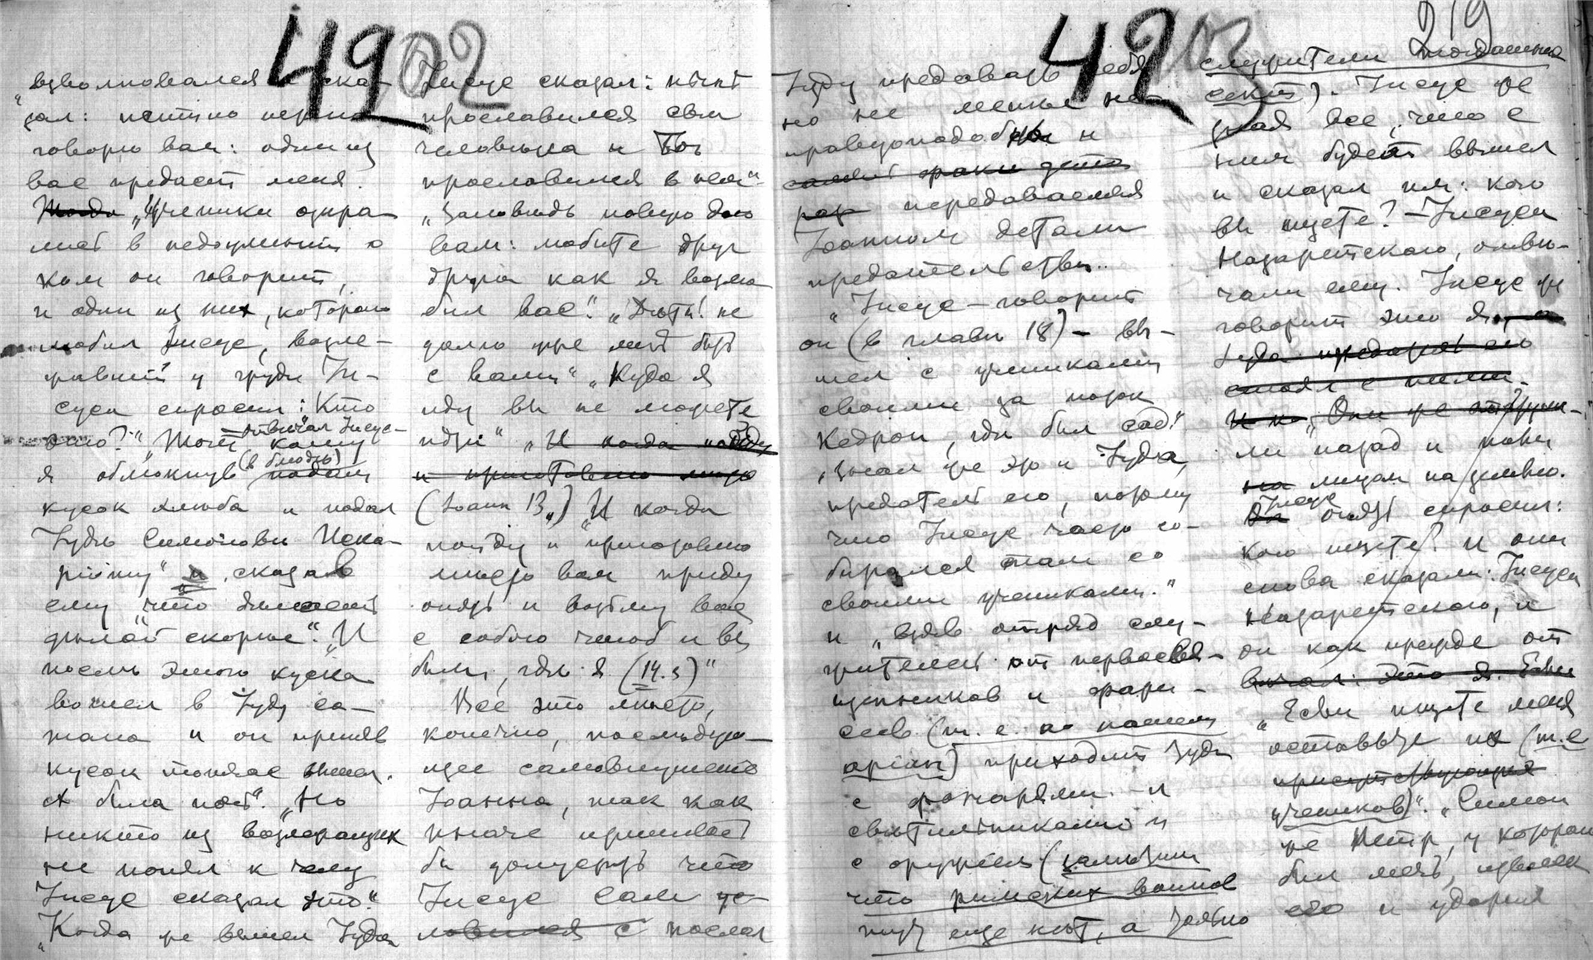 492
02
„взволновался ска-
зал: истинно истинно
говорю вам: один из
вас предаст меня.
Тогда „Ученики озира-
лись в недоумении о
ком он говорит,
и один из них, которого
любил Iисус, возле-
жавший у груди Iи-
суса спросил: „Кто
это?“ „Тот отвечал Iисус- кому
я обмокнув (в блюдо) подам
кусок хлеба и подал
Iуде Симонову Иска-
рiоту“ и, сказав
ему „что делаешь
делай скорее“. „И
после этого куска
вошел в Iуду са-
тана и он приняв
кусок тотчас вышел.
А была ночь“. „Но
никто из возлежащих
не понял к чему
Iисус сказал это“.
„Когда же вышел Iуда
Iисус сказал: ныне
прославился сын
человека и Бог
прославился в нем“
„Заповедь новую даю
вам: любите друг
друга как я возлю-
бил вас“. „Дети! не
долго уже мне быть
с вами“ „Куда я
иду вы не можете
идти“ „И когда пойду
и приготовлю место
(Iоанн 13,) „И когда
пойду и приготовлю
место вам приду
опять и возьму вас
с собою чтоб и вы
были, где я (14.3)“
Все это место,
конечно, последую-
щее самовнушение
Iоанна, так как
иначе пришлось
бы допустить что
Iисус сам
с послал
42
03
219
Iуду предавать себя
но не менее не-
правдоподобны и
самые факты дета
передаваемая
Iоанном детали
предательства.
„Iисус – говорит
он (в главе 18) – вы-
шел с учениками
своими за поток
Кедрон, где был сад“.
„Знал же это и Iуда,
предатель его, потому
что Iисус часто со-
бирался там со
своими учениками.“
и „взяв отряд слу-
жителей от первосвя-
щенников и фари-
сеев (т. е. по нашему
арiан) приходит Iуда
с фонарями и
светильниками и
с оружием (
что римских воинов
тут еще нет, а только
служители тогдашних
сект). Iисус же
зная все, что с
ним будет вышел
и сказал им: кого
вы ищете? – Iисуса
Назаретского, отве-
чали ему. Iисус же
говорит это я, а
Iуда предатель его
стоял с ними.
И но „Они же отступи-
ли назад и пали
на лицом на землю.
Он Iисус опять спросил:
кого ищете? и они
снова сказали: Iисуса
Назаретского, и
он как прежде от
вечал: Это я. Если
„Если ищете меня
оставьте их (т.е
присутствующих
учеников)“. „Симон
же Петр, у которого
был мечъ, извлек
его и ударил